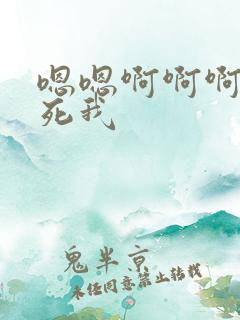 嗯嗯啊啊啊
死我
鬼半京
未经同意禁止转载